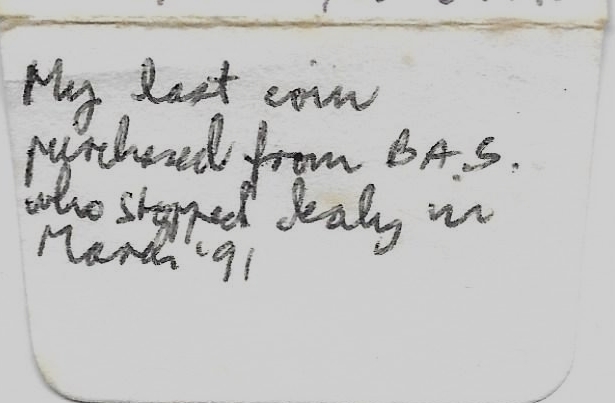 My last coin
purchased from B.A.S.
who stopped dealing in
March '91